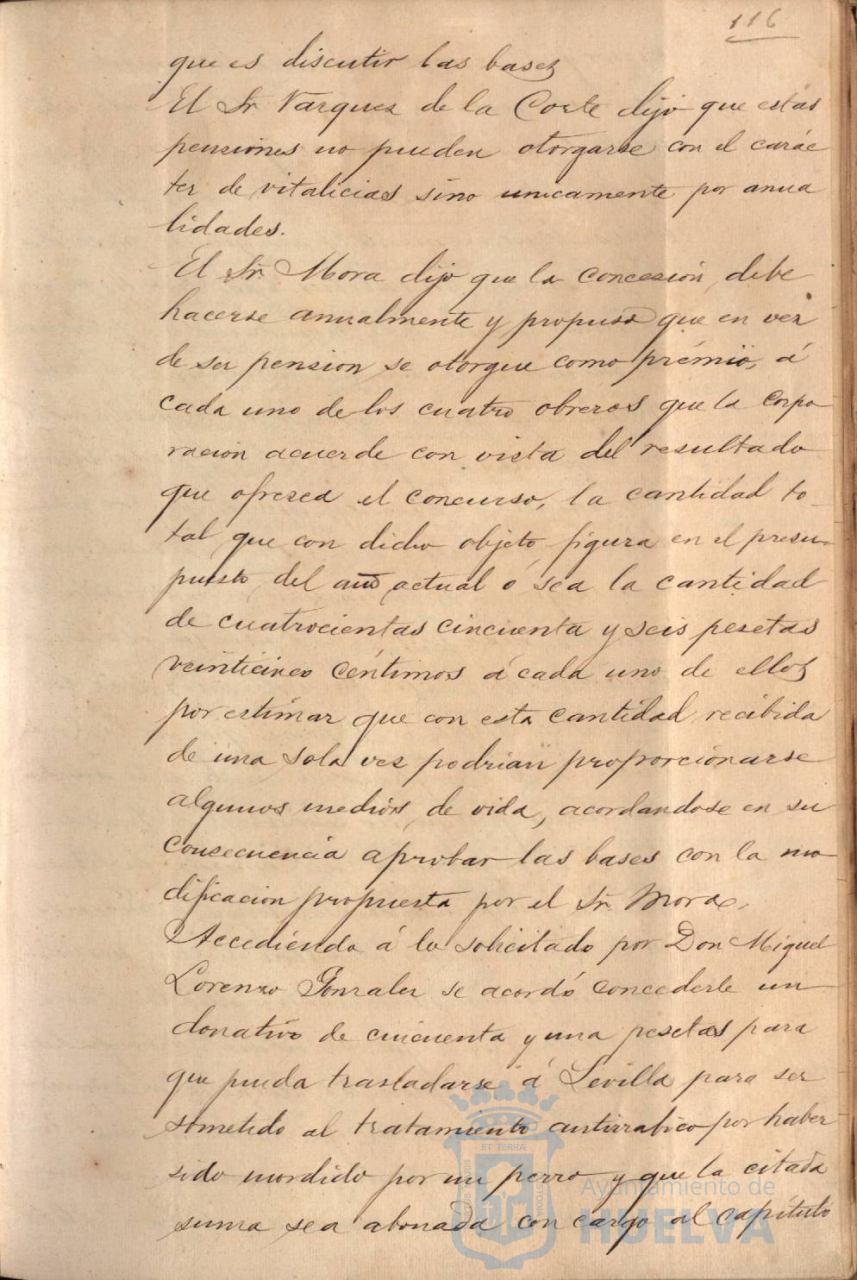 116
que es discutir las bases
El Sr. Vazquez de la Corte dijo que estas
pensiones no pueden otorgarse con el carác
ter de vitalicias sino unicamente por anua
lidades.
El Sr. Mora dijo que la concesión debe
hacerse anualmente y propuso que en vez
de ser pension se otorgue como prémio, á
cada uno de los cuatro obreros que la corpo-
ración acuerde con vista del resultado
que ofresca el concurso, la cantidad to-
tal que con dicho objeto figura en el presu-
puesto del año actual ó sea la cantidad
de cuatrocientas cincuenta y seis pesetas
veinticinco céntimos á cada uno de ellos
por estimar que con esta cantidad recibida
de una sola vez podrian proporcionarse
algunos medios de vida, acordandose en su
consecuencia aprobar las bases con la mo-
dificacion propuesta por el Sr. Mora.
Accediendo á lo solicitado por Don Miguel
Lorenzo Gonzalez se acordó concederle un
donativo de cincuenta y una pesetas para
que pueda trasladarse á Sevilla para ser
sometido al tratamiento antirrabico por haber
sido mordido por un perro y que la citada
suma sea abonada con cargo al capítulo
Ayuntamiento de
HUELVA